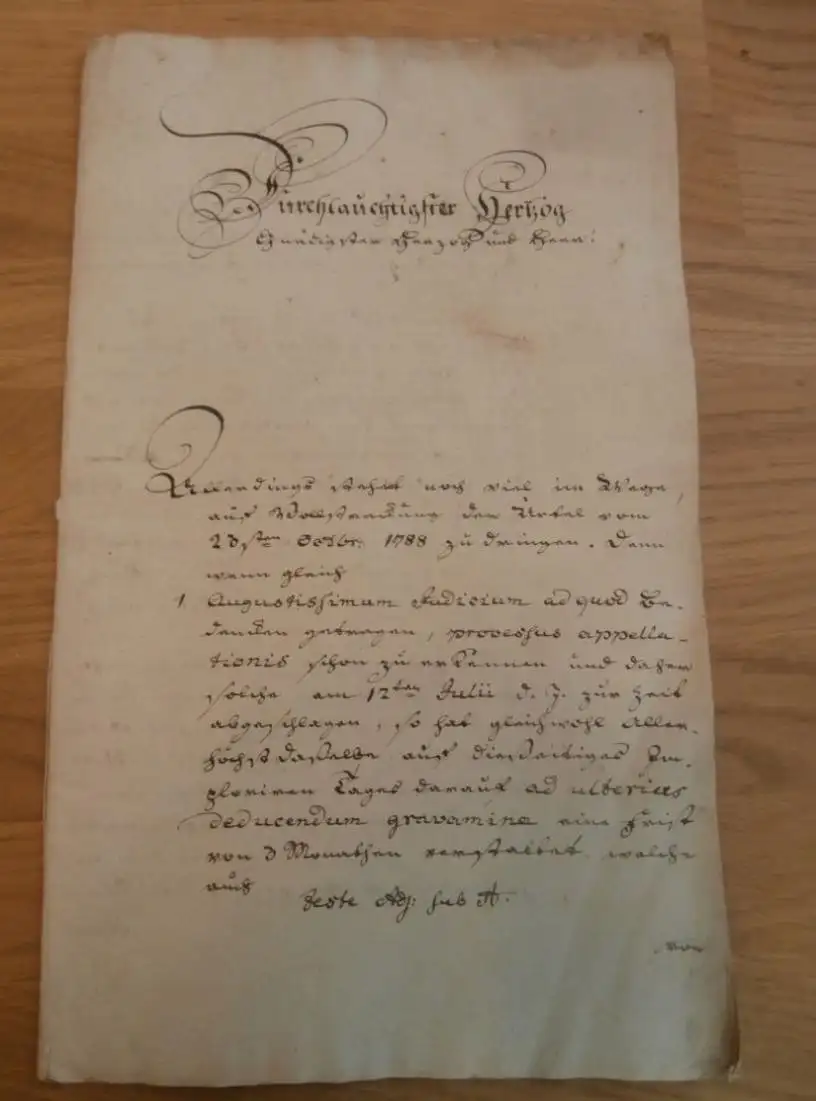 Durchlauchtigster Hertzog
Gnädigster Herzog und Herr!
Allerdings stehet noch viel im Wege,
auf Vollstreckung der Urtel vom
23sten Octbr: 1788 zu dringen. Denn
wenn gleich
1. Augustissimum Judicium ad quod Be-
dencken getragen, processus appella-
tionis schon zu erkennen und daher
solche am 12ten Julii d. J. zur Zeit
abgeschlagen, so hat gleichwohl Aller-
höchst dasselbe auf diesseitiges Im-
ploriren Tages darauf ad ulterius
deducendum gravamina eine Frist
von 3 Monathen verstattet, welche
auch
teste Adj: sub A.
von